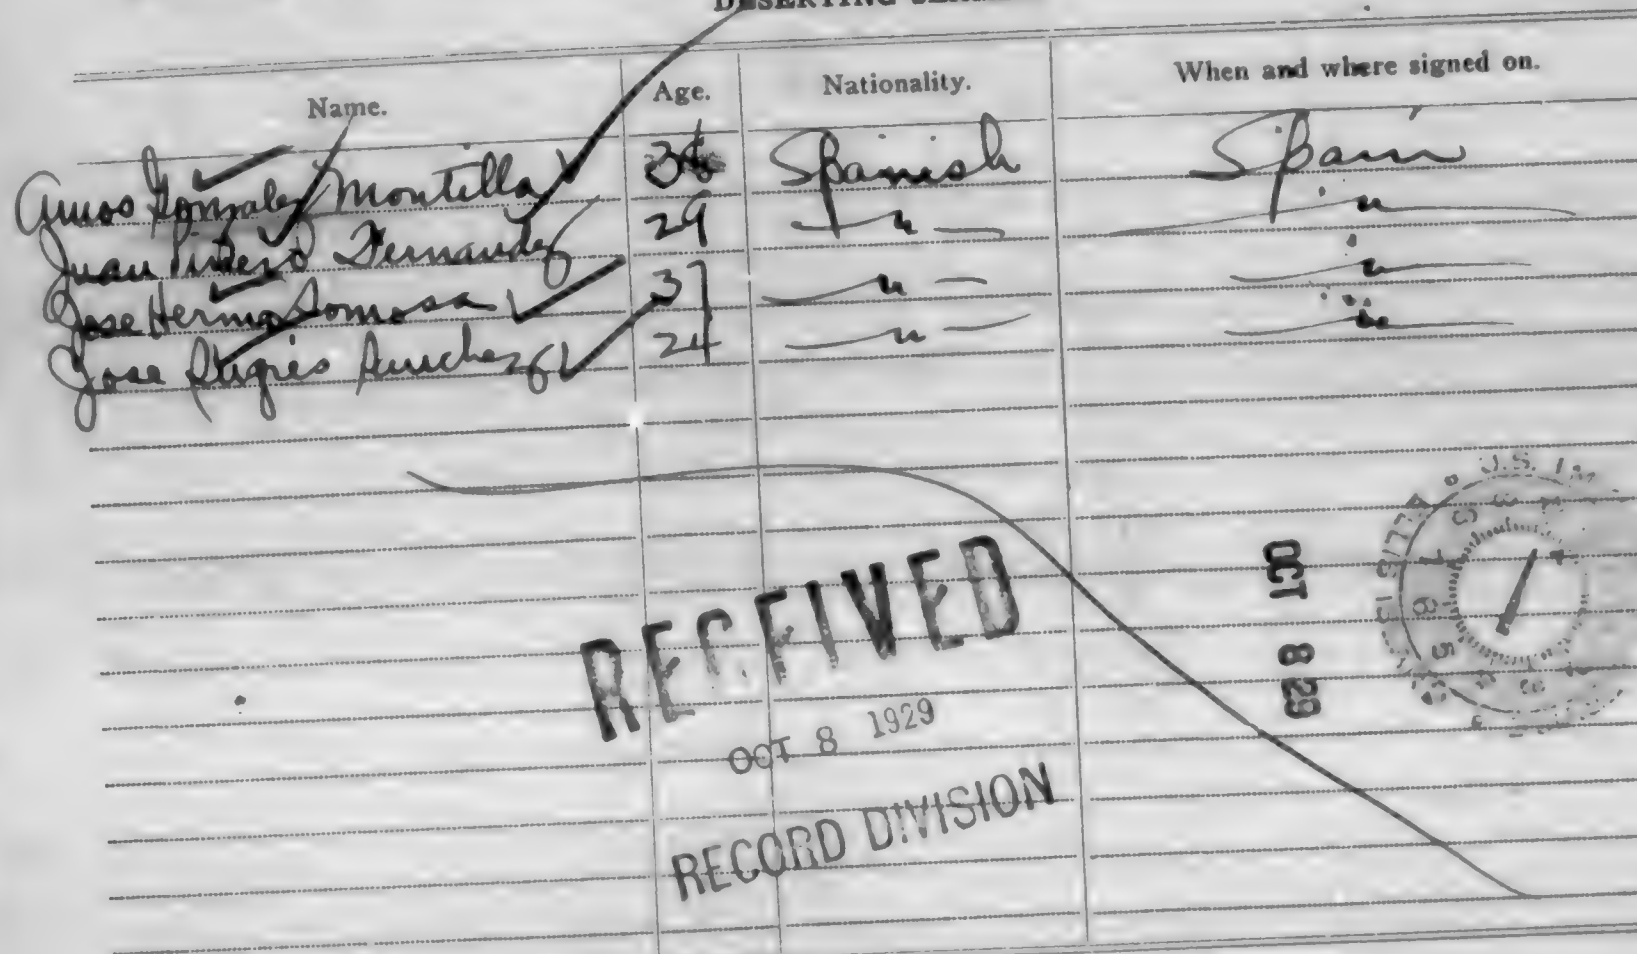 DESERTING SEAMEN
Name. Age. Nationality. When and where signed on.
Amos Gonzalez Montilla Spanish Spain
Juan Piñero Fernandez 29 " "
Jose Hermo Somosa 37 " "
Jose Sanchez 24 " "
RECEIVED
OCT 8 1929
RECORD DIVISION
OCT 8 29
U.S.